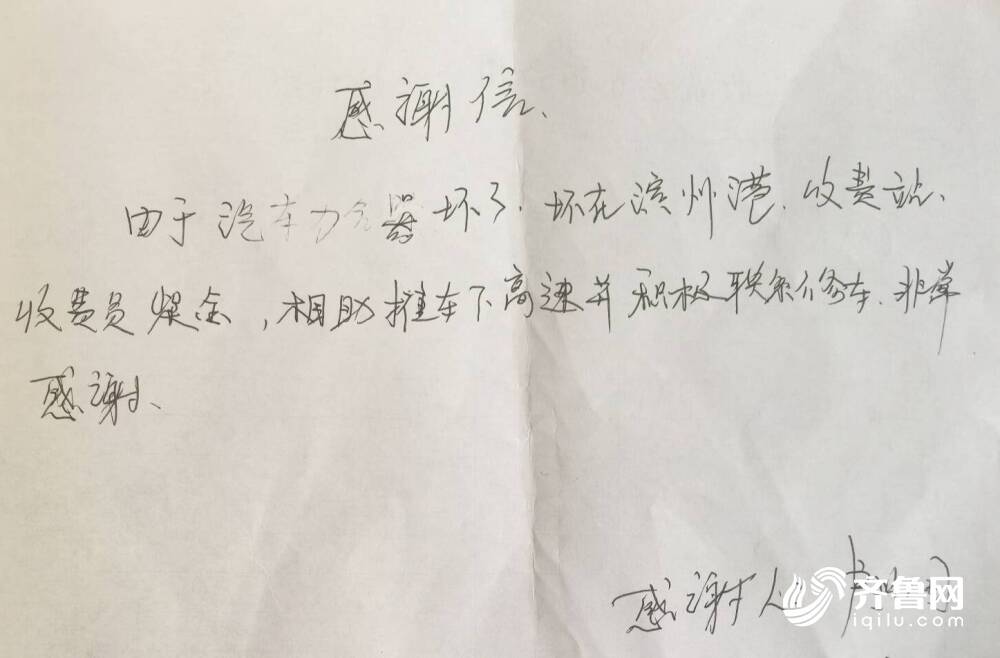 感谢信、
由于汽车力合器坏了.坏在滨州港.收费站、
收费员焊金,相助推车下高速并积极联系修车.非常
感谢、
感谢人
齐鲁网
iqilu.com